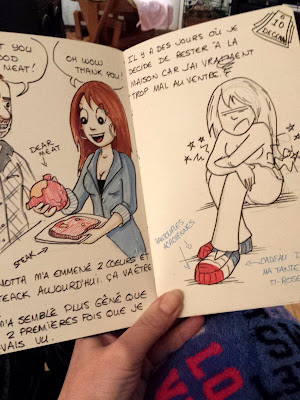 T YOU
OOD
MEAT!
OH WOW
THANK YOU!
DEAR
MEAT
STEAK
NOTTA M'A EMMENÉ 2 COEURS ET
TEACK AUJOURD'HUI. ÇA VA ÊTRE
M'A SEMBLÉ PLUS GÊNÉ QUE
2 PREMIÈRES FOIS QUE JE
VAIS VU.
IL Y A DES JOURS OÙ JE
DÉCIDE DE RESTER À LA
MAISON CAR J'AI VRAIMENT
TROP MAL AU VENTRE.
10
CADEAU
MA TANTE
TI-ROSE
LO